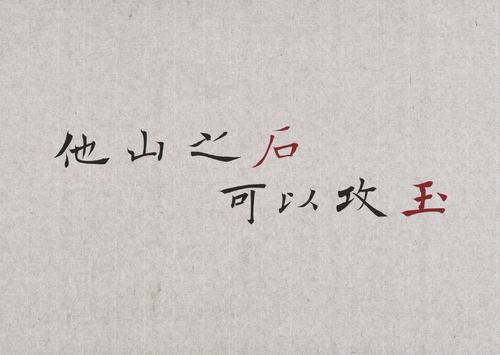 他山之石
可以攻玉